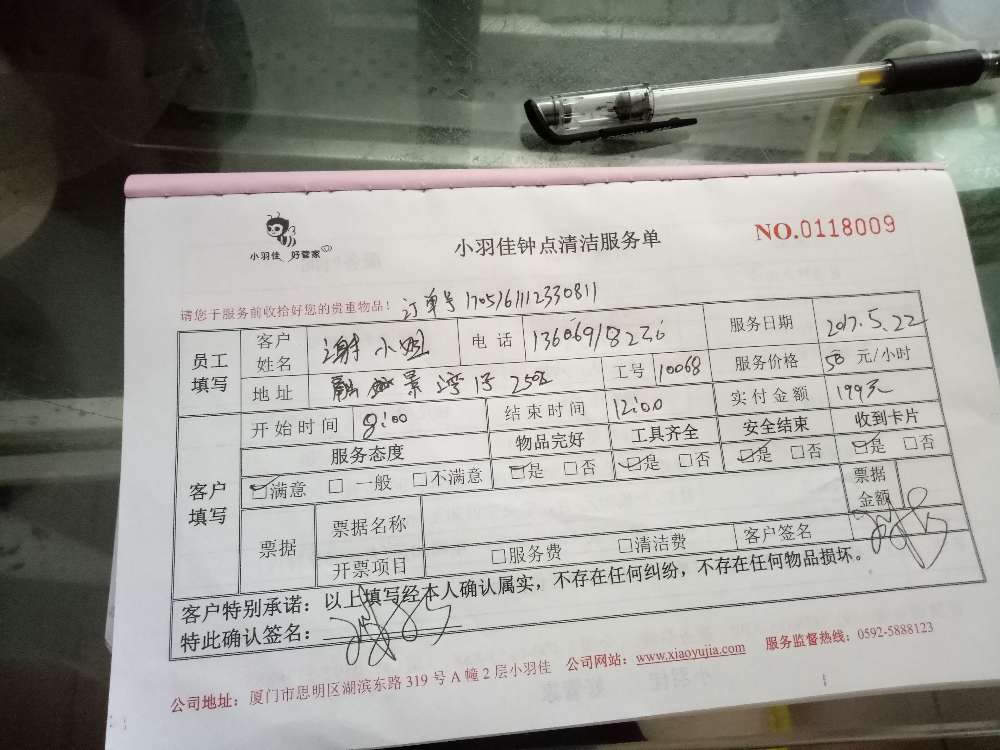 小羽佳 好管家
小羽佳钟点清洁服务单
NO.0118009
请您于服务前收拾好您的贵重物品！ 订单号
员工填写 客户姓名 谢小姐 电话 服务日期 2017.5.22
地址 景湾 工号 10068 服务价格 50 元/小时
客户填写 开始时间 8:00 结束时间 12:00 实付金额 199元
服务态度 物品完好 工具齐全 安全结束 收到卡片
满意 一般 不满意 是 否 是 否 是 否 是 否
票据 票据名称 票据金额
开票项目 服务费 清洁费 客户签名
客户特别承诺：以上填写经本人确认属实，不存在任何纠纷，不存在任何物品损坏。
特此确认签名：
公司地址：厦门市思明区湖滨东路 319 号 A 幢 2 层小羽佳 公司网站：www.xiaoyujia.com 服务监督热线：0592-5888123